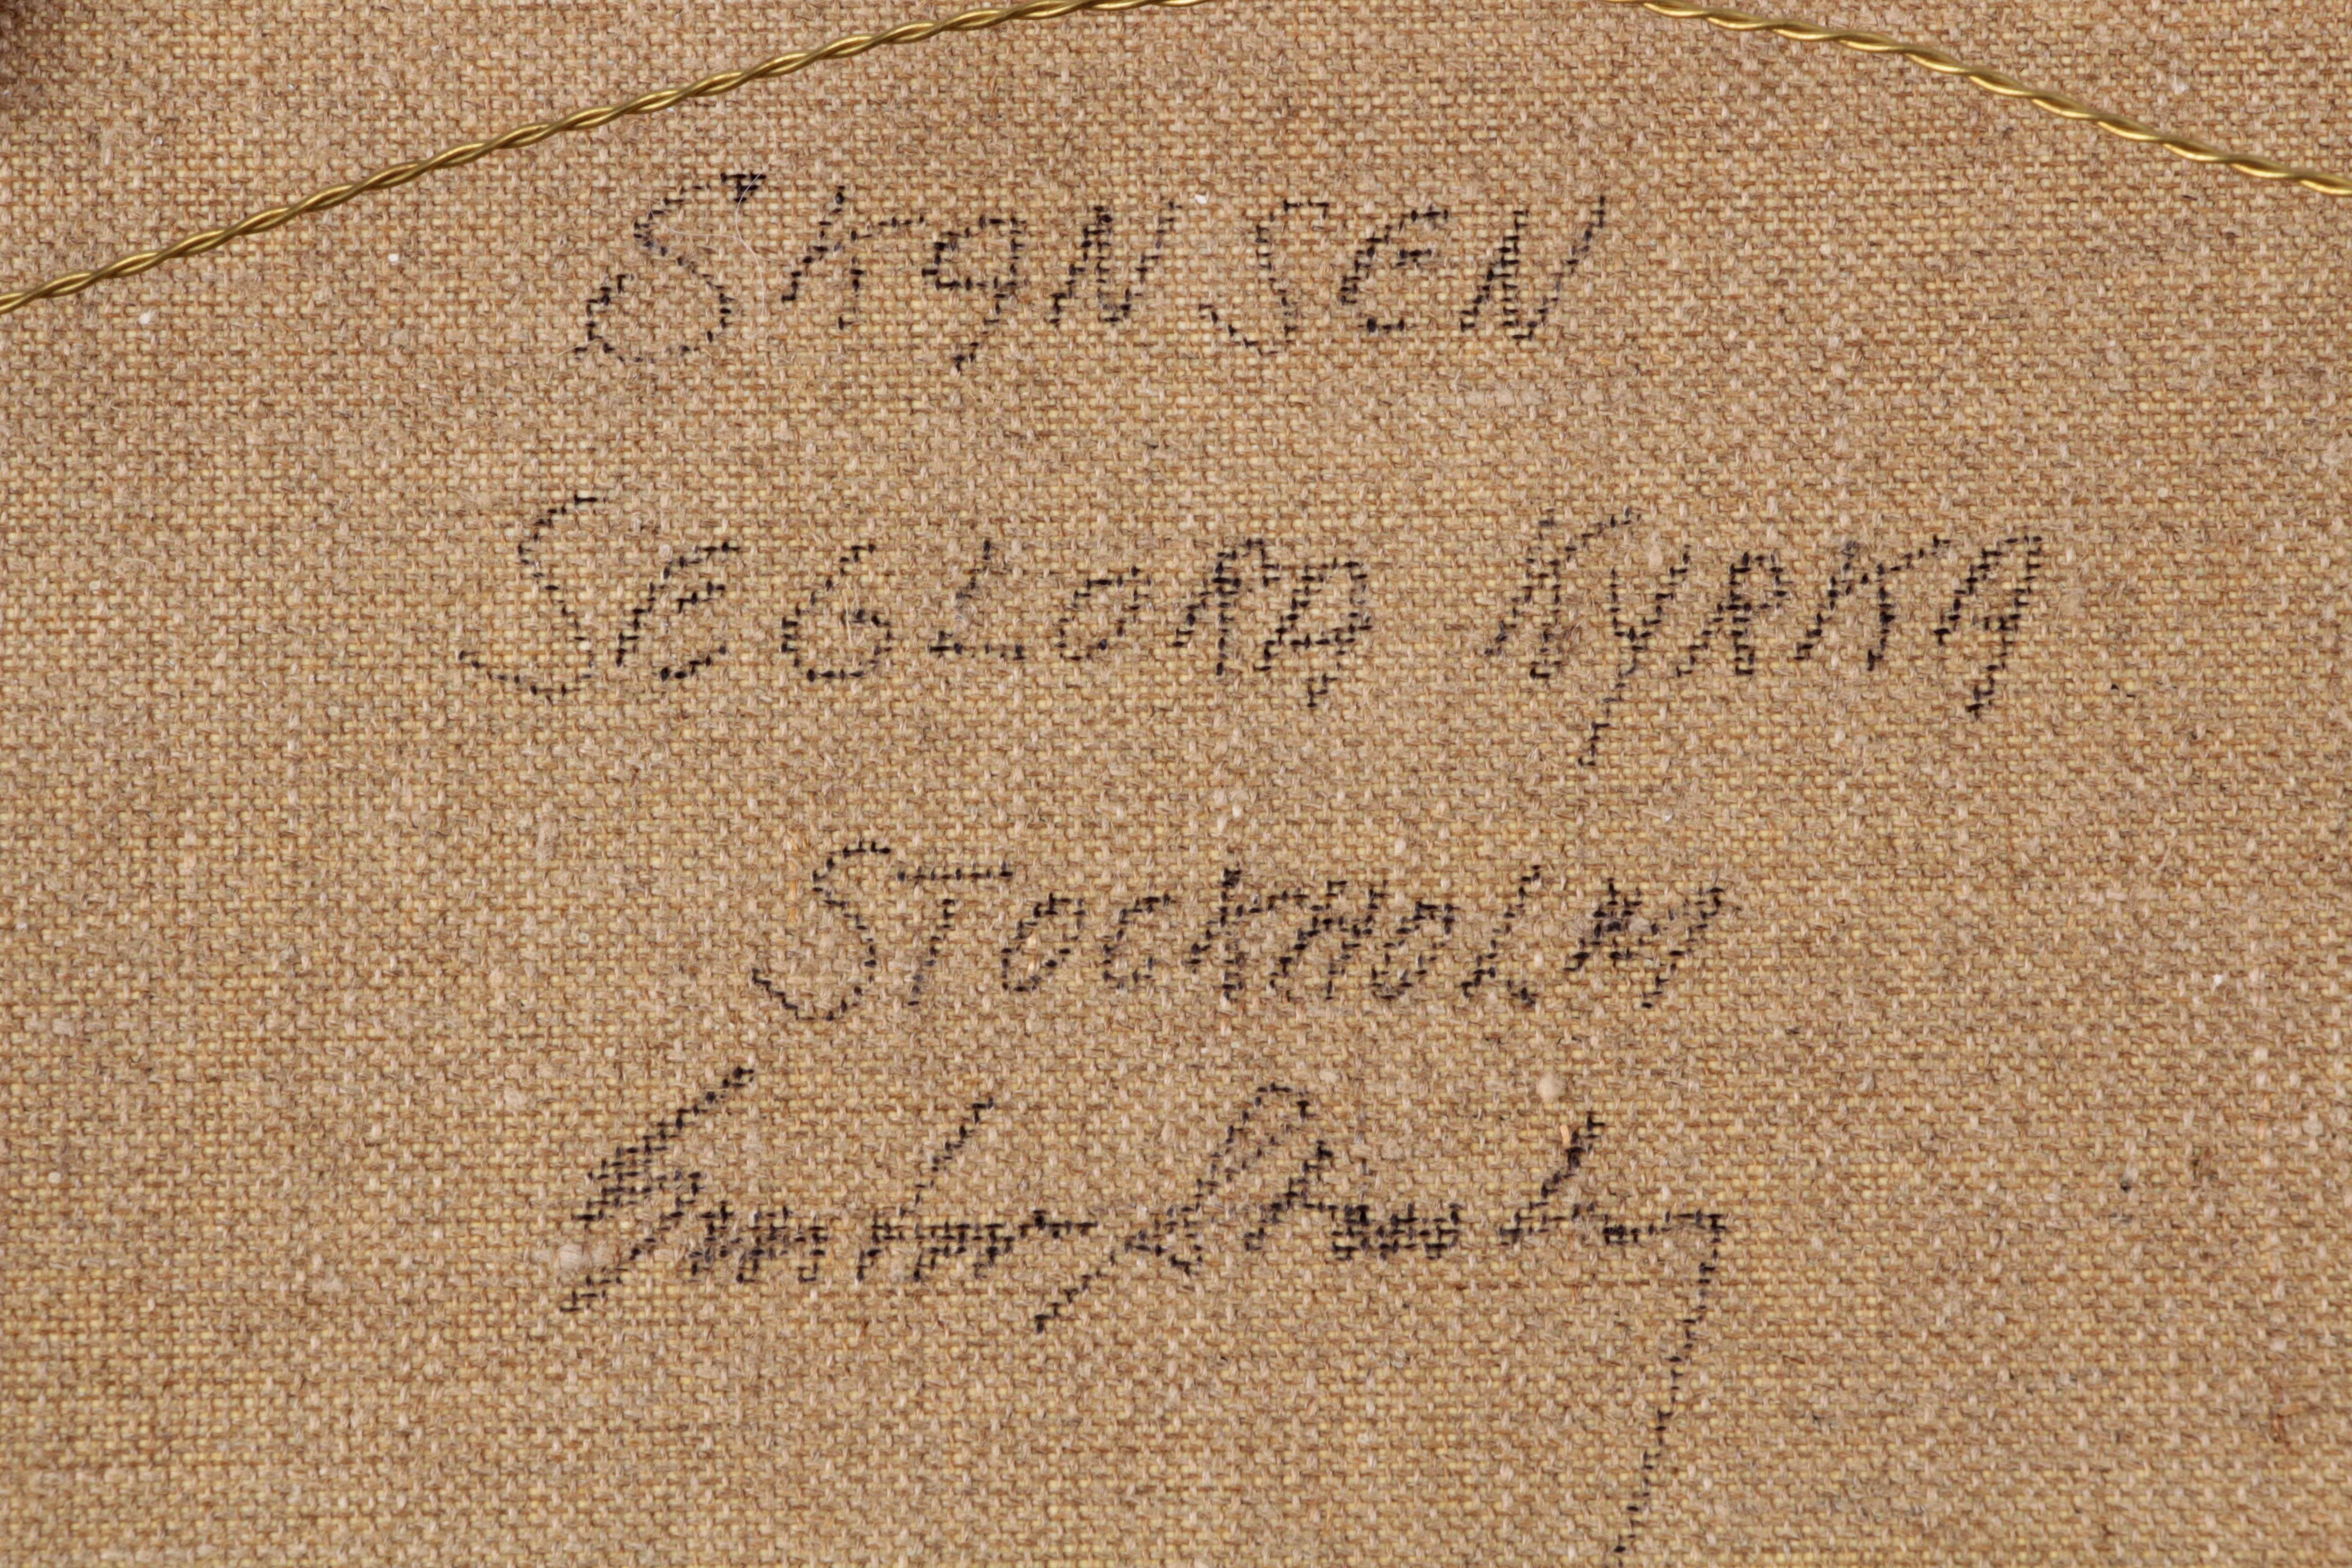 SKANSEN
SEGLORA KYRKA
STOCKHOLM